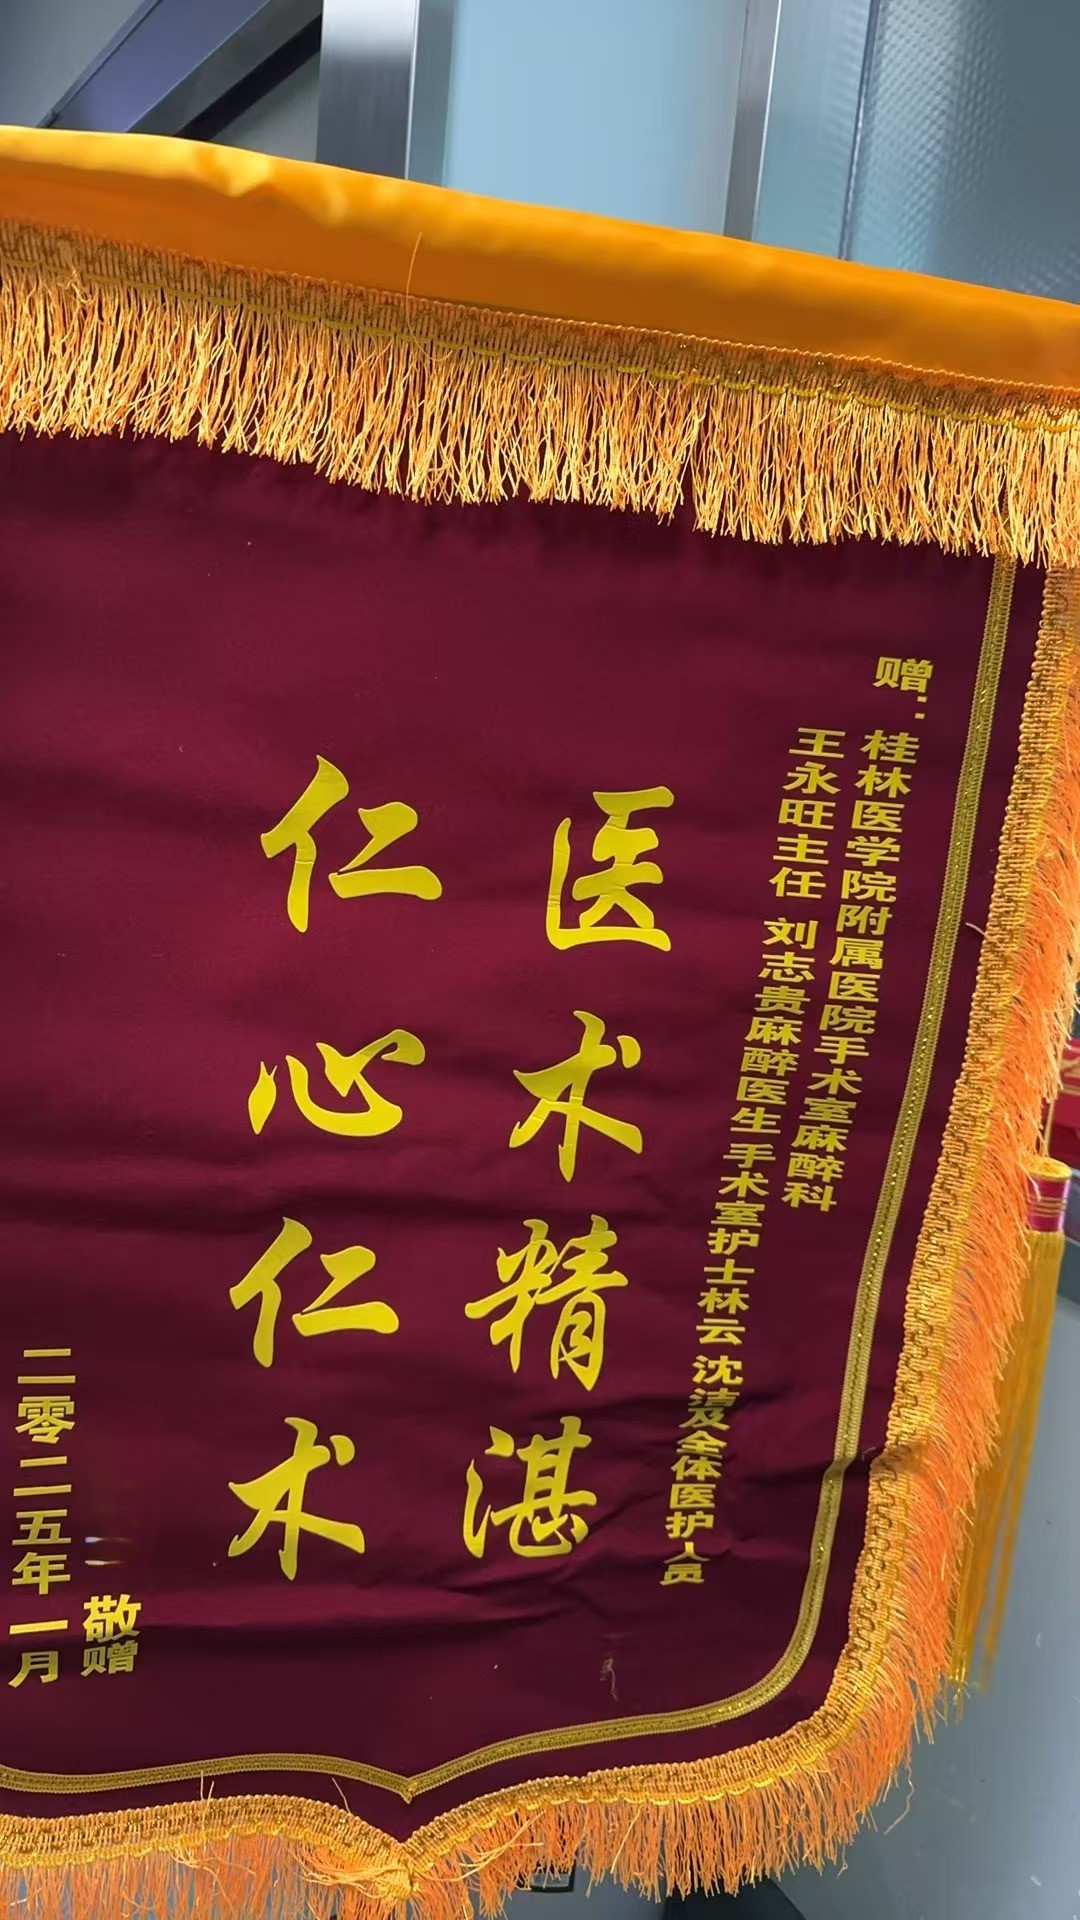 赠:桂林医学院附属医院手术室麻醉科
王永旺主任 刘志贵麻醉医生 手术室护士林云 沈洁及全体医护人员
医术精湛
仁心仁术
敬赠
二零二五年一月